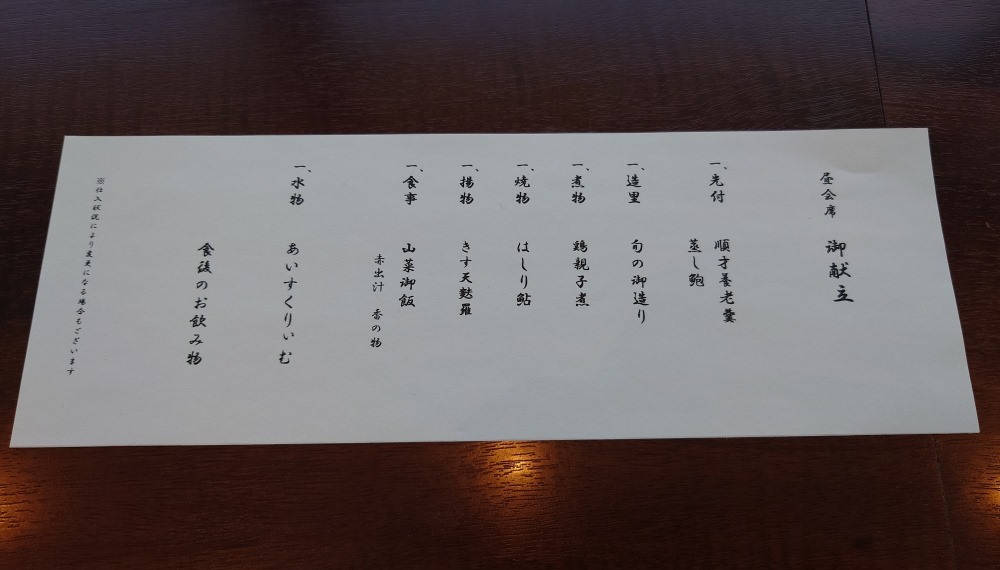 昼会席　御献立
一、先付　順才養老羹
蒸し鮑
一、造里　旬の御造り
一、煮物　鶏親子煮
一、焼物　はしり鮎
一、揚物　きす天麩羅
一、食事　山菜御飯
赤出汁　香の物
一、水物　あいすくりぃむ
食後のお飲み物
※仕入状況により変更になる場合もございます